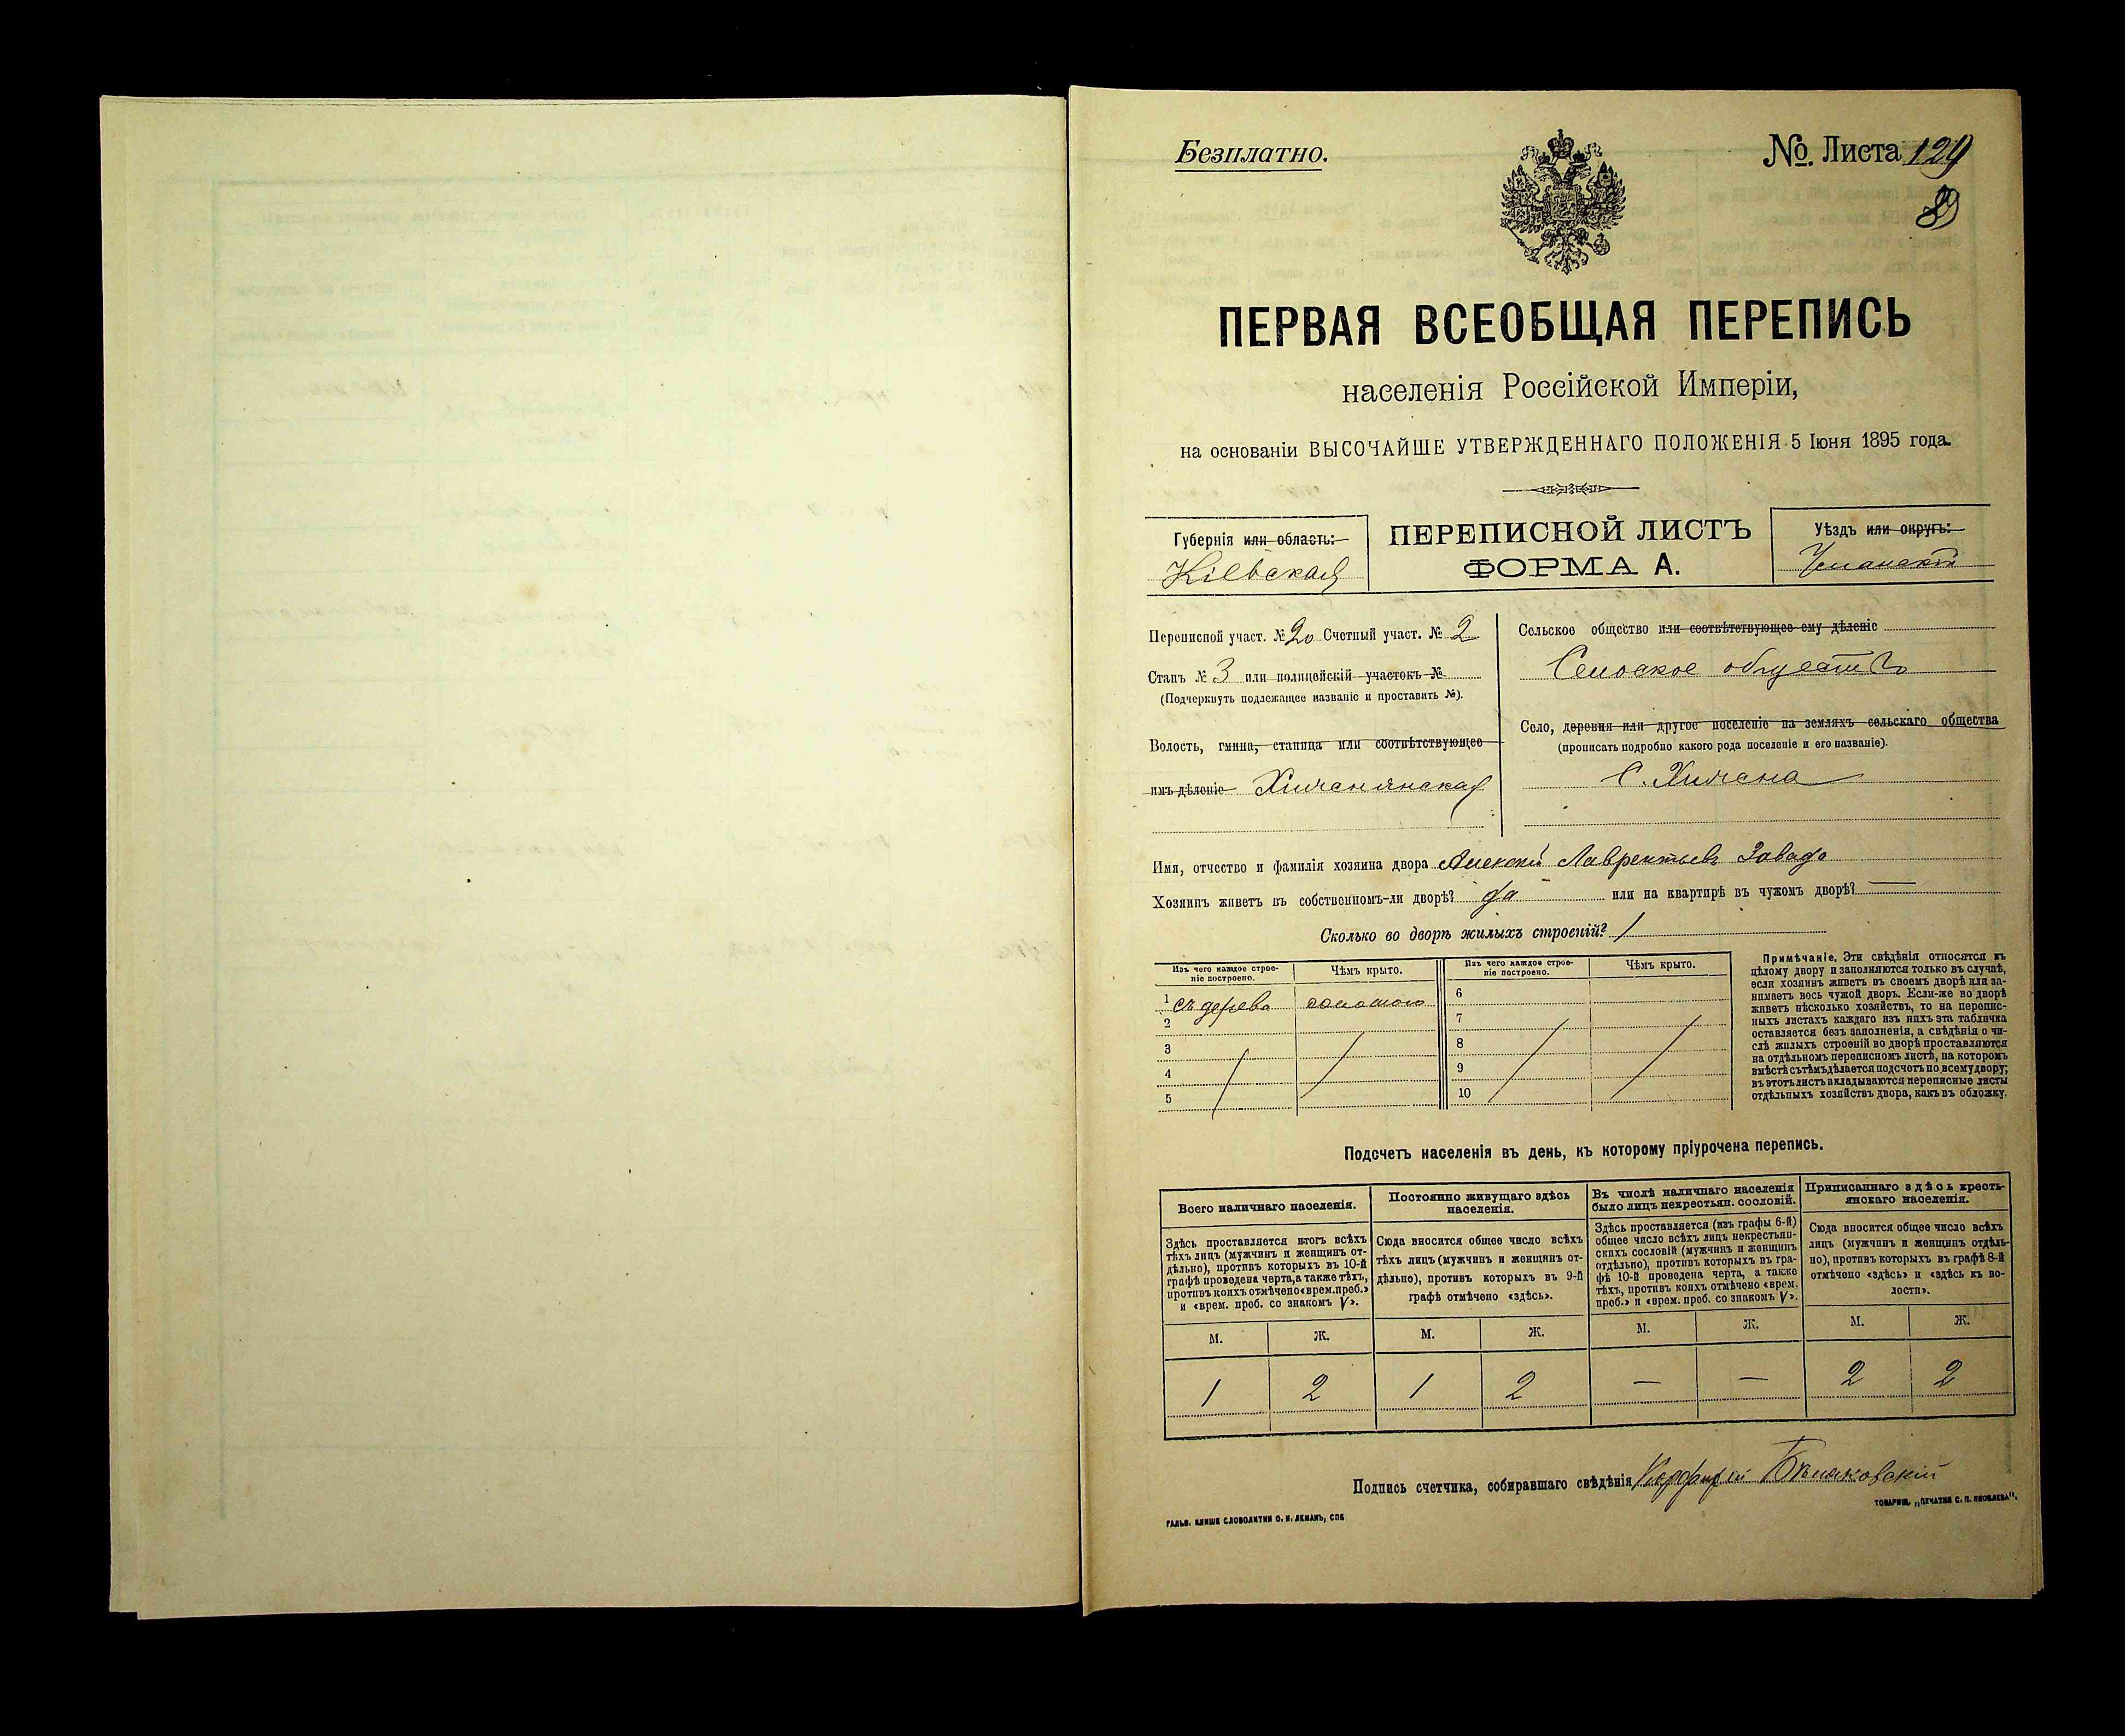 Безплатно.
№ Листа 129
ПЕРВАЯ ВСЕОБЩАЯ ПЕРЕПИСЬ
населенія Россійской Имперіи,
на основаніи ВЫСОЧАЙШЕ УТВЕРЖДЕННАГО ПОЛОЖЕНІЯ 5 Іюня 1895 года.
Губернія или область:
Кіевская
ПЕРЕПИСНОЙ ЛИСТЪ
ФОРМА А.
Уѣздъ или округъ:
Уманскій
Переписной участ. № 20 Счетный участ. № 2
Станъ № 3 или полицейскій участокъ №
(Подчеркнуть подлежащее названіе и проставить №).
Волость, гмина, станица или соотвѣтствующее
имъ дѣленіе
Сельское общество или соотвѣтствующее ему дѣленіе
общество
Село, деревня или другое поселеніе на земляхъ сельскаго общества
(прописать подробно какого рода поселеніе и его названіе).
С.
Имя, отчество и фамилія хозяина двора Алексѣй Лаврентьевъ Завада
Хозяинъ живетъ въ собственномъ-ли дворѣ? да или на квартирѣ въ чужомъ дворѣ? —
Сколько во дворѣ жилыхъ строеній? 1
Изъ чего каждое строе-
ніе построено.
Чѣмъ крыто.
Изъ чего каждое строе-
ніе построено.
Чѣмъ крыто.
1 съ дерева соломою
2
3
4
5
6
7
8
9
10
Примѣчаніе. Эти свѣдѣнія относятся къ
цѣлому двору и заполняются только въ случаѣ,
если хозяинъ живетъ въ своемъ дворѣ или за-
нимаетъ весь чужой дворъ. Если-же во дворѣ
живетъ нѣсколько хозяйствъ, то на перепис-
ныхъ листахъ каждаго изъ нихъ эта табличка
оставляется безъ заполненія, а свѣдѣнія о чи-
слѣ жилыхъ строеній во дворѣ проставляются
на отдѣльномъ переписномъ листѣ, на которомъ
вмѣстѣ съ тѣмъ дѣлается подсчетъ по всему двору;
въ этотъ листъ вкладываются переписные листы
отдѣльныхъ хозяйствъ двора, какъ въ обложку.
Подсчетъ населенія въ день, къ которому пріурочена перепись.
Всего наличнаго населенія.
Здѣсь проставляется итогъ всѣхъ
тѣхъ лицъ (мужчинъ и женщинъ от-
дѣльно), противъ которыхъ въ 10-й
графѣ проведена черта, а также тѣхъ,
противъ коихъ отмѣчено «врем. преб.»
и «врем. преб. со знакомъ V».
Постоянно живущаго здѣсь
населенія.
Сюда вносится общее число всѣхъ
тѣхъ лицъ (мужчинъ и женщинъ от-
дѣльно), противъ которыхъ въ 9-й
графѣ отмѣчено «здѣсь».
Въ числѣ наличнаго населенія
было лицъ некрестьян. сословій.
Здѣсь проставляется (изъ графы 6-й)
общее число всѣхъ лицъ некрестьян-
скихъ сословій (мужчинъ и женщинъ
отдѣльно), противъ которыхъ въ гра-
фѣ 10-й проведена черта, а также
тѣхъ, противъ коихъ отмѣчено «врем.
преб.» и «врем. преб. со знакомъ V».
Приписаннаго здѣсь кресть-
янскаго населенія.
Сюда вносится общее число всѣхъ
лицъ (мужчинъ и женщинъ отдѣль-
но), противъ которыхъ въ графѣ 8-й
отмѣчено «здѣсь» и «здѣсь къ во-
лости».
М. Ж. М. Ж. М. Ж. М. Ж.
1 2 1 2 — — 2 2
Подпись счетчика, собиравшаго свѣдѣнія
ГАЛЬВ. КЛИШЕ СЛОВОЛИТНИ О. И. ЛЕМАНЪ, СПБ
ТОВАРИЩ. „ПЕЧАТНЯ С. П. ЯКОВЛЕВА".